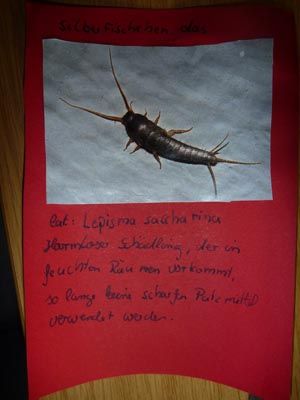 Silberfischchen, das
lat: Lepisma saccharina
Harmloser Schädling, der in
feuchten Räumen vorkommt,
so lange keine scharfen Putzmittel
verwendet werden.